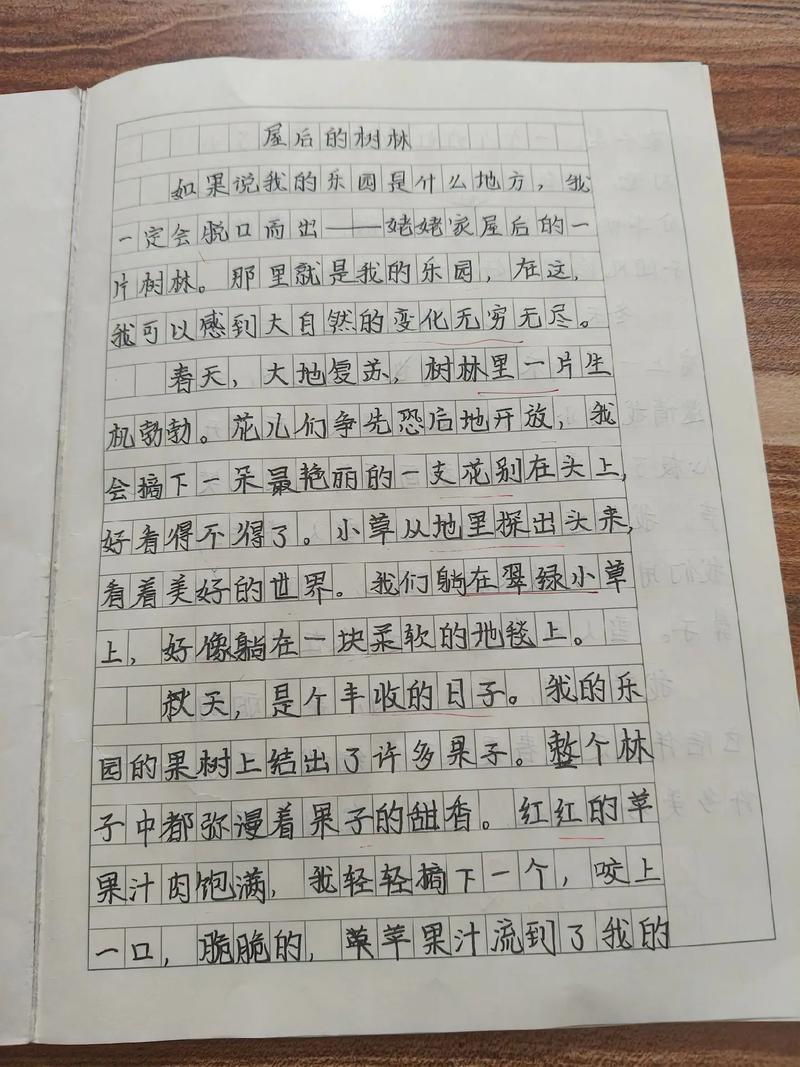 屋后的树林
如果说我的乐园是什么地方，我
一定会脱口而出——姥姥家屋后的一
片树林。那里就是我的乐园，在这，
我可以感到大自然的变化无穷无尽。
春天，大地复苏，树林里一片生
机勃勃。花儿们争先恐后地开放，我
会摘下一朵最艳丽的一支花别在头上，
好看得不得了。小草从地里探出头来，
看着美好的世界。我们躺在翠绿小草
上，好像躺在一块柔软的地毯上。
秋天，是个丰收的日子。我的乐
园的果树上结出了许多果子。整个林
子中都弥漫着果子的甜香。红红的苹
果汁肉饱满，我轻轻摘下一个，咬上
一口，脆脆的，苹果汁流到了我的